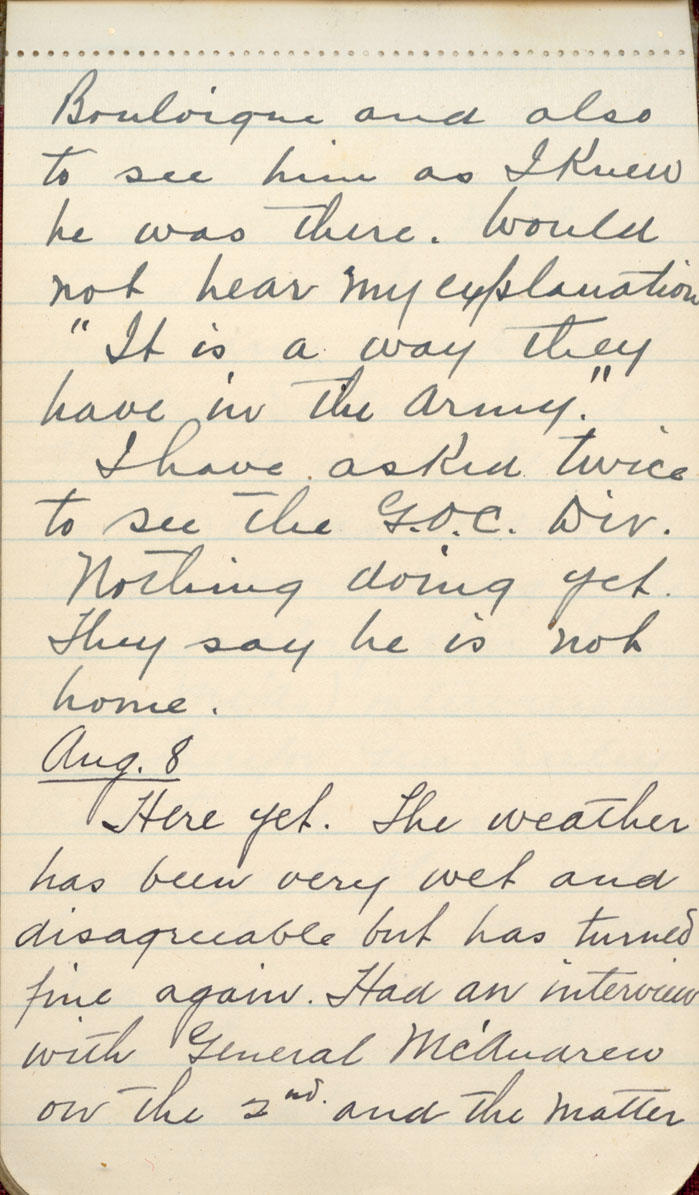 Boulvigne and also
to see him as I Knew
he was there. Would
not hear my explanation
"It is a way they
have in the army."
I have asked twice
to see the G.O.C. Div.
Nothing doing yet.
They say he is not
home.
Aug. 8
Here yet. The weather
has been very wet and
disagreeable but has turned
fine again. Had an interview
with General McAndrew
on the 2nd. and the matter